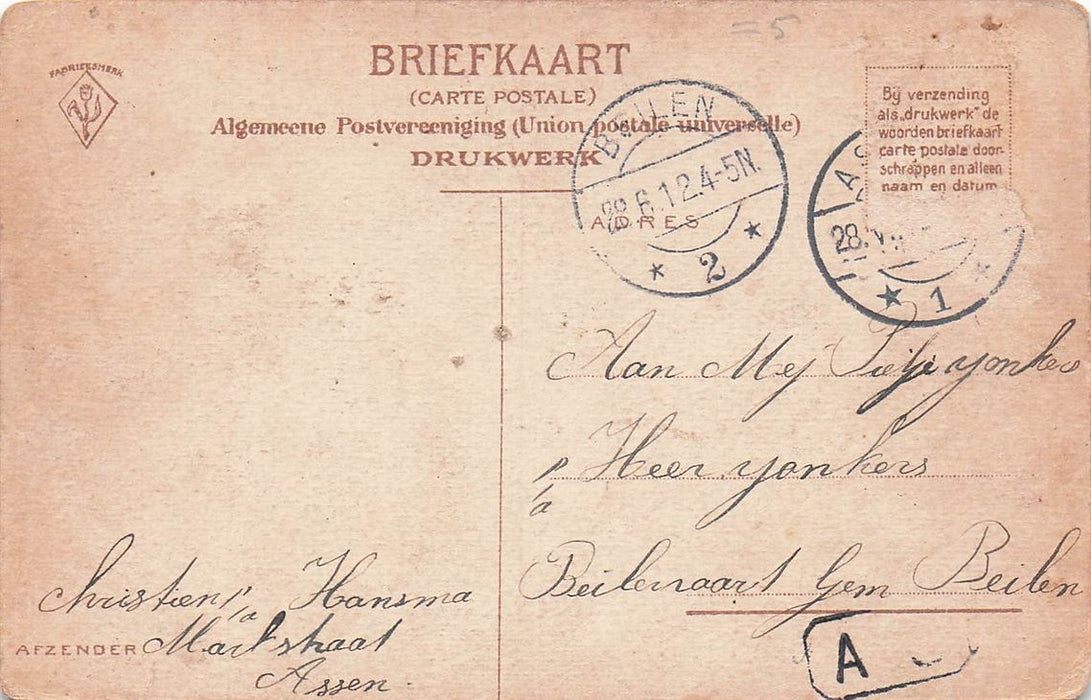 = 5
FABRIEKSMERK
BRIEFKAART
(CARTE POSTALE)
Algemeene Postvereeniging (Union postale universelle)
DRUKWERK
ADRES
Bij verzending
als „drukwerk" de
woorden briefkaart
carte postale door-
schrappen en alleen
naam en datum
BEILEN
28.6.12.4-5N.
2
28.
1
Aan Mej yonkers
p/a Heer yonkers
Beilervaart Gem Beilen
Christien p/a Hansma
AFZENDER Marktstraat
Assen
A